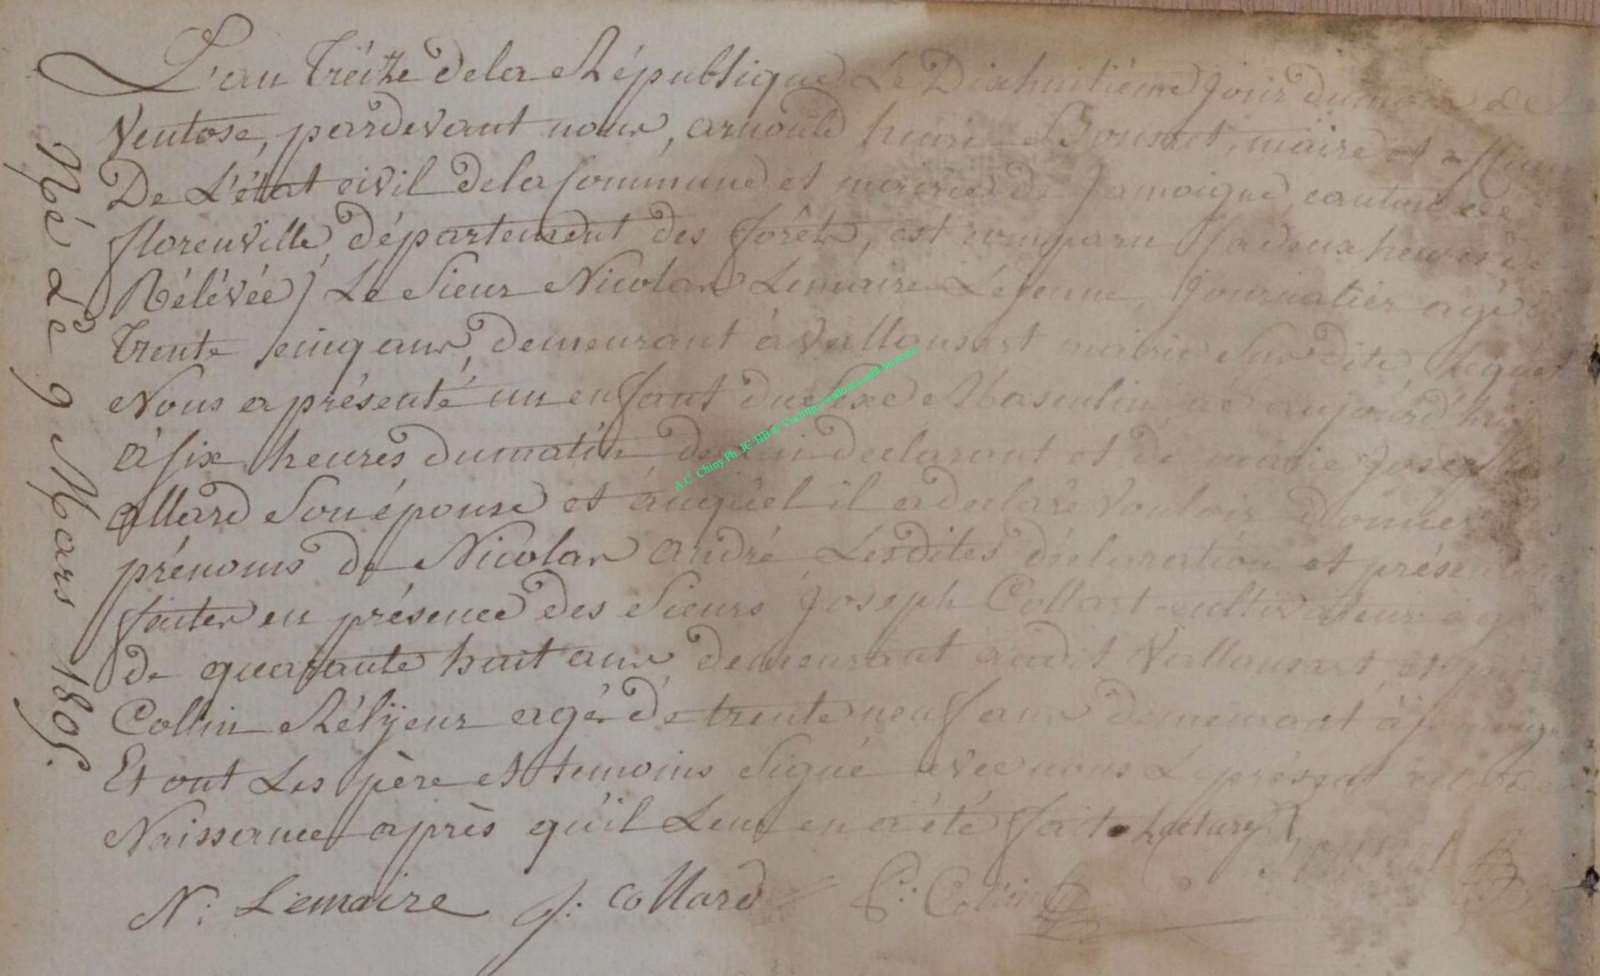 Né Le 9 Mars 1805.
L'an Treize de la République Le Dixhuitième jour du mois de
Ventose, pardevant nous, arnould henri Bonnet, maire et
De L'état civil de la Commune et mairie de Jamoigne, canton de
florenville, département des forêts, est comparu (à deux heures de
Rélévée) Le Sieur Nicolas Lemaire Lejeune, Journalier agé
Trente cinq ans, demeurant à Vallansart mairie Sus dite Lequel
Nous a présenté un enfant du Sexe Masculin, né aujourd'hui
à six heures du matin de lui declarant et de marie Josephe
allard Son épouse et auquel il a déclaré Vouloir donner
prénoms de Nicolas andré Lesdites déclaration et présentation
faites en présence des Sieurs Joseph Collart cultivateur agé
de quarante huit ans demeurant audit Vallansart, et
Collin Rélijeur agé de trente neuf ans demeurant à Jamoigne
Et ont Les père et temoins Signé avec nous Le présent acte de
Naissance après qu'il Leur en a été fait Lecture
N: Lemaire J: Collard P: Colin
A.C. Chiny Ph. JC